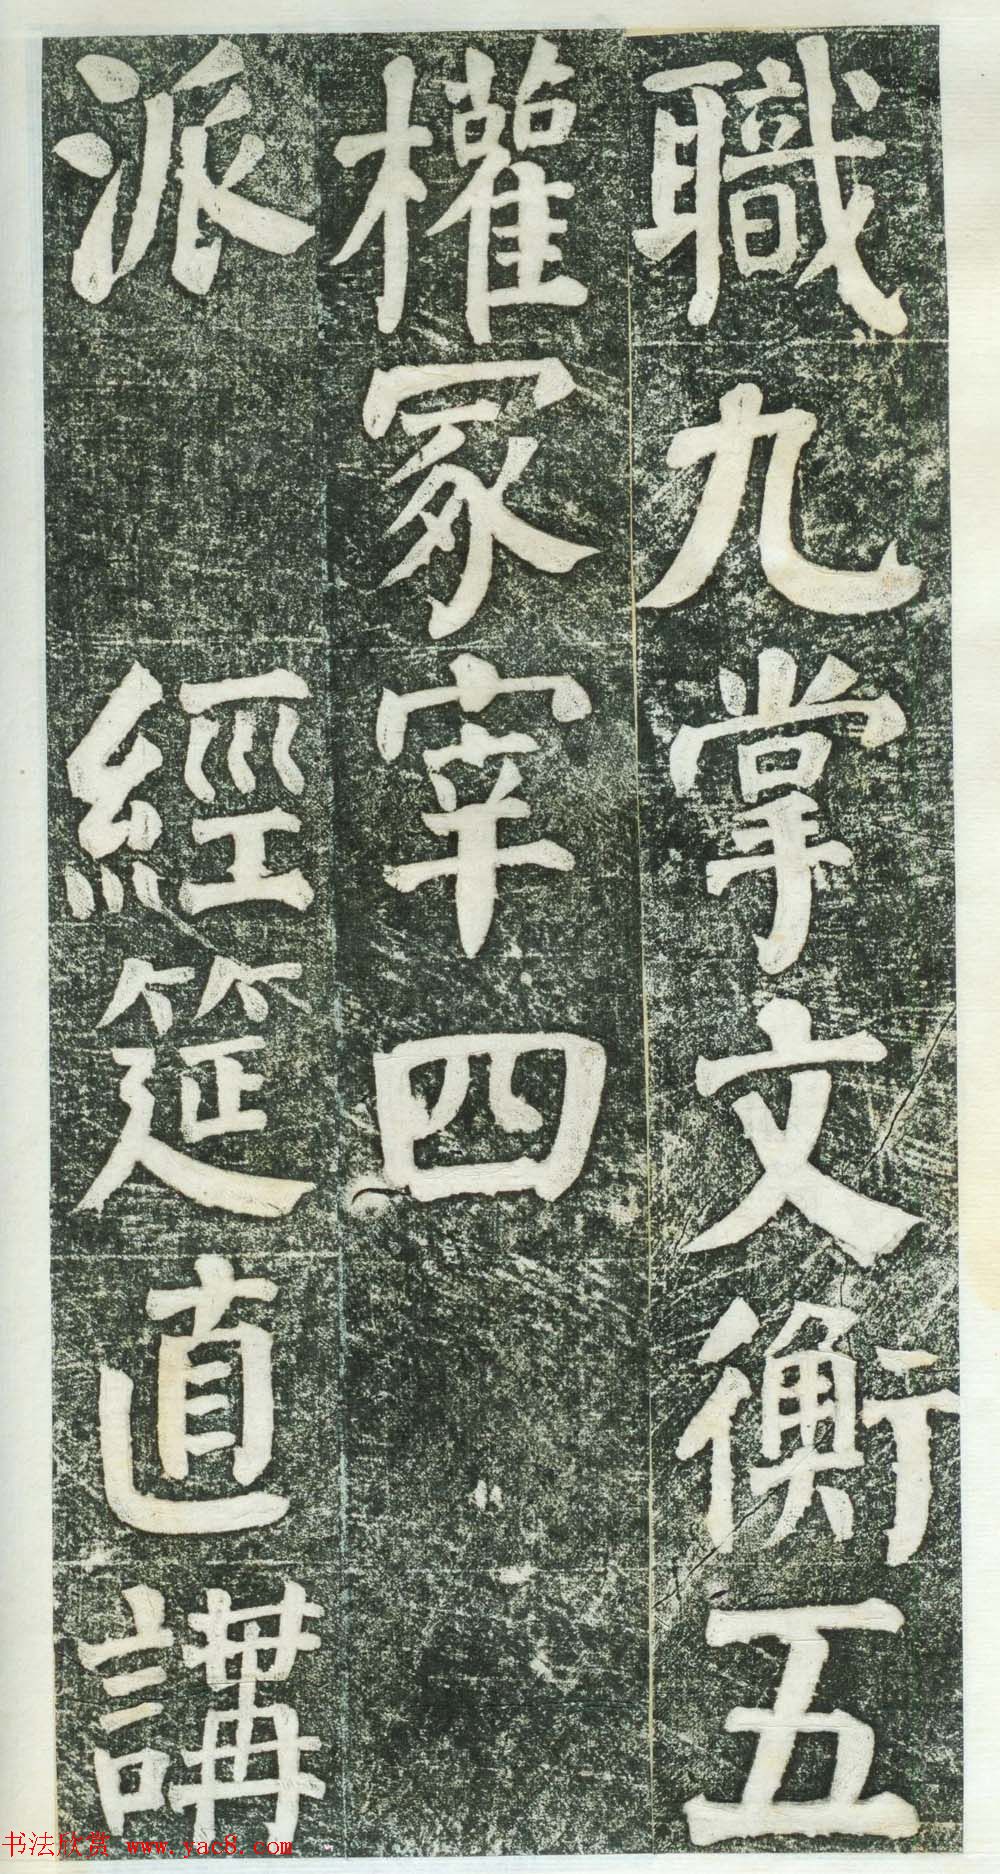 職九掌文衡五
權冢宰四
派 經筵直講
书法欣赏 www.yac8.com